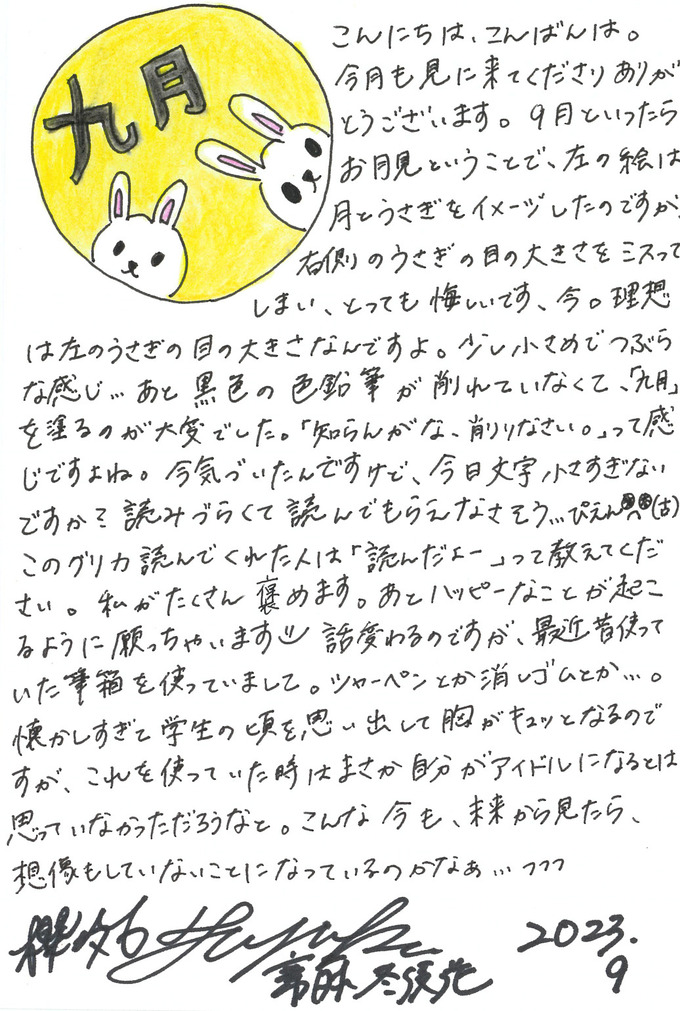 九月
こんにちは、こんばんは。
今月も見に来てくださりありが
とうございます。9月といったら
お月見ということで、左の絵は
月とうさぎをイメージしたのですが、
右側のうさぎの目の大きさをミスって
しまい、とっても悔しいです、今。理想
は左のうさぎの目の大きさなんですよ。少し小さめでつぶら
な感じ… あと黒色の色鉛筆が削れていなくて、「九月」
を塗るのが大変でした。「知らんがな、削りなさい。」って感
じですよね。今気づいたんですけど、今日文字小さすぎない
ですか?読みづらくて読んでもらえなさそう…ぴえん(古)
このグリカ読んでくれた人は「読んだよー」って教えてくだ
さい。私がたくさん褒めます。あとハッピーなことが起こ
るように願っちゃいます 話変わるのですが、最近昔使って
いた筆箱を使っていまして。シャーペンとか消しゴムとか…。
懐かしすぎて学生の頃を思い出して胸がキュッとなるので
すが、これを使っていた時はまさか自分がアイドルになるとは
思っていなかっただろうなと。こんな今も、未来から見たら、
想像もしていないことになっているのかなぁ…フフフ
2023.
9